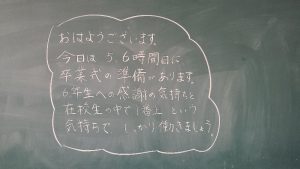 おはようございます。
今日は5,6時間目に、
卒業式の準備があります。
6年生への感謝の気持ちと
在校生の中で1番上という
気持ちでしっかり働きましょう。